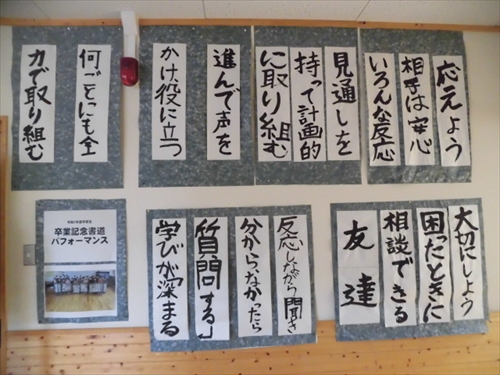 応えよう
相手は安心
いろんな反応
見通しを
持って計画的
に取り組む
進んで声を
かけ役に立つ
何ごとにも全
力で取り組む
大切にしよう
困ったときに
相談できる
友達
反応しながら聞き
分からなかったら
「質問する」
学びが深まる
卒業記念書道
パフォーマンス